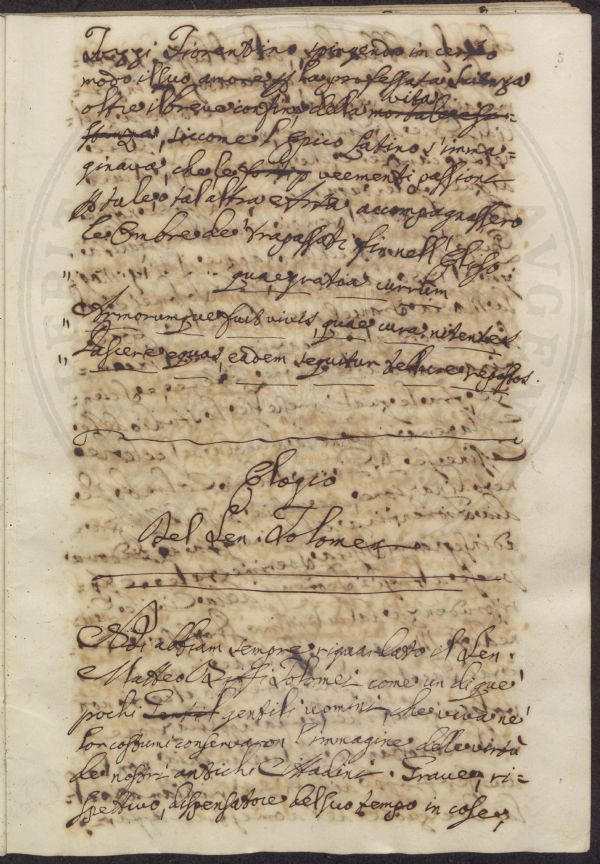 Tozzi Fiorentino, spingendo in certo
modo il suo amore p la professata scienza
oltre il breve confine della vita
, siccome l'Epico Latino s'imma=
ginava, che le p veementi passioni
p tale o tal altra Arte accompagnassero
le Ombre de' trapassati fin nell'
Eliso.
" quae gratia currum
" Armorumque fuit vivis, quae cura nitentes
" Pascere equos, eadem sequitur tellure repostos.
Elogio
Del Sen. Tolomei
Noi abbiam sempre riguardato il Sen.
Matteo Biffi Tolomei come un di que'
pochi gentili uomini, che viva ne'
lor costumi conservaron l'immagine delle virtù
de nostri antichi Cittadini. Grave, ri=
spettivo, dispensatore del suo tempo in cose,